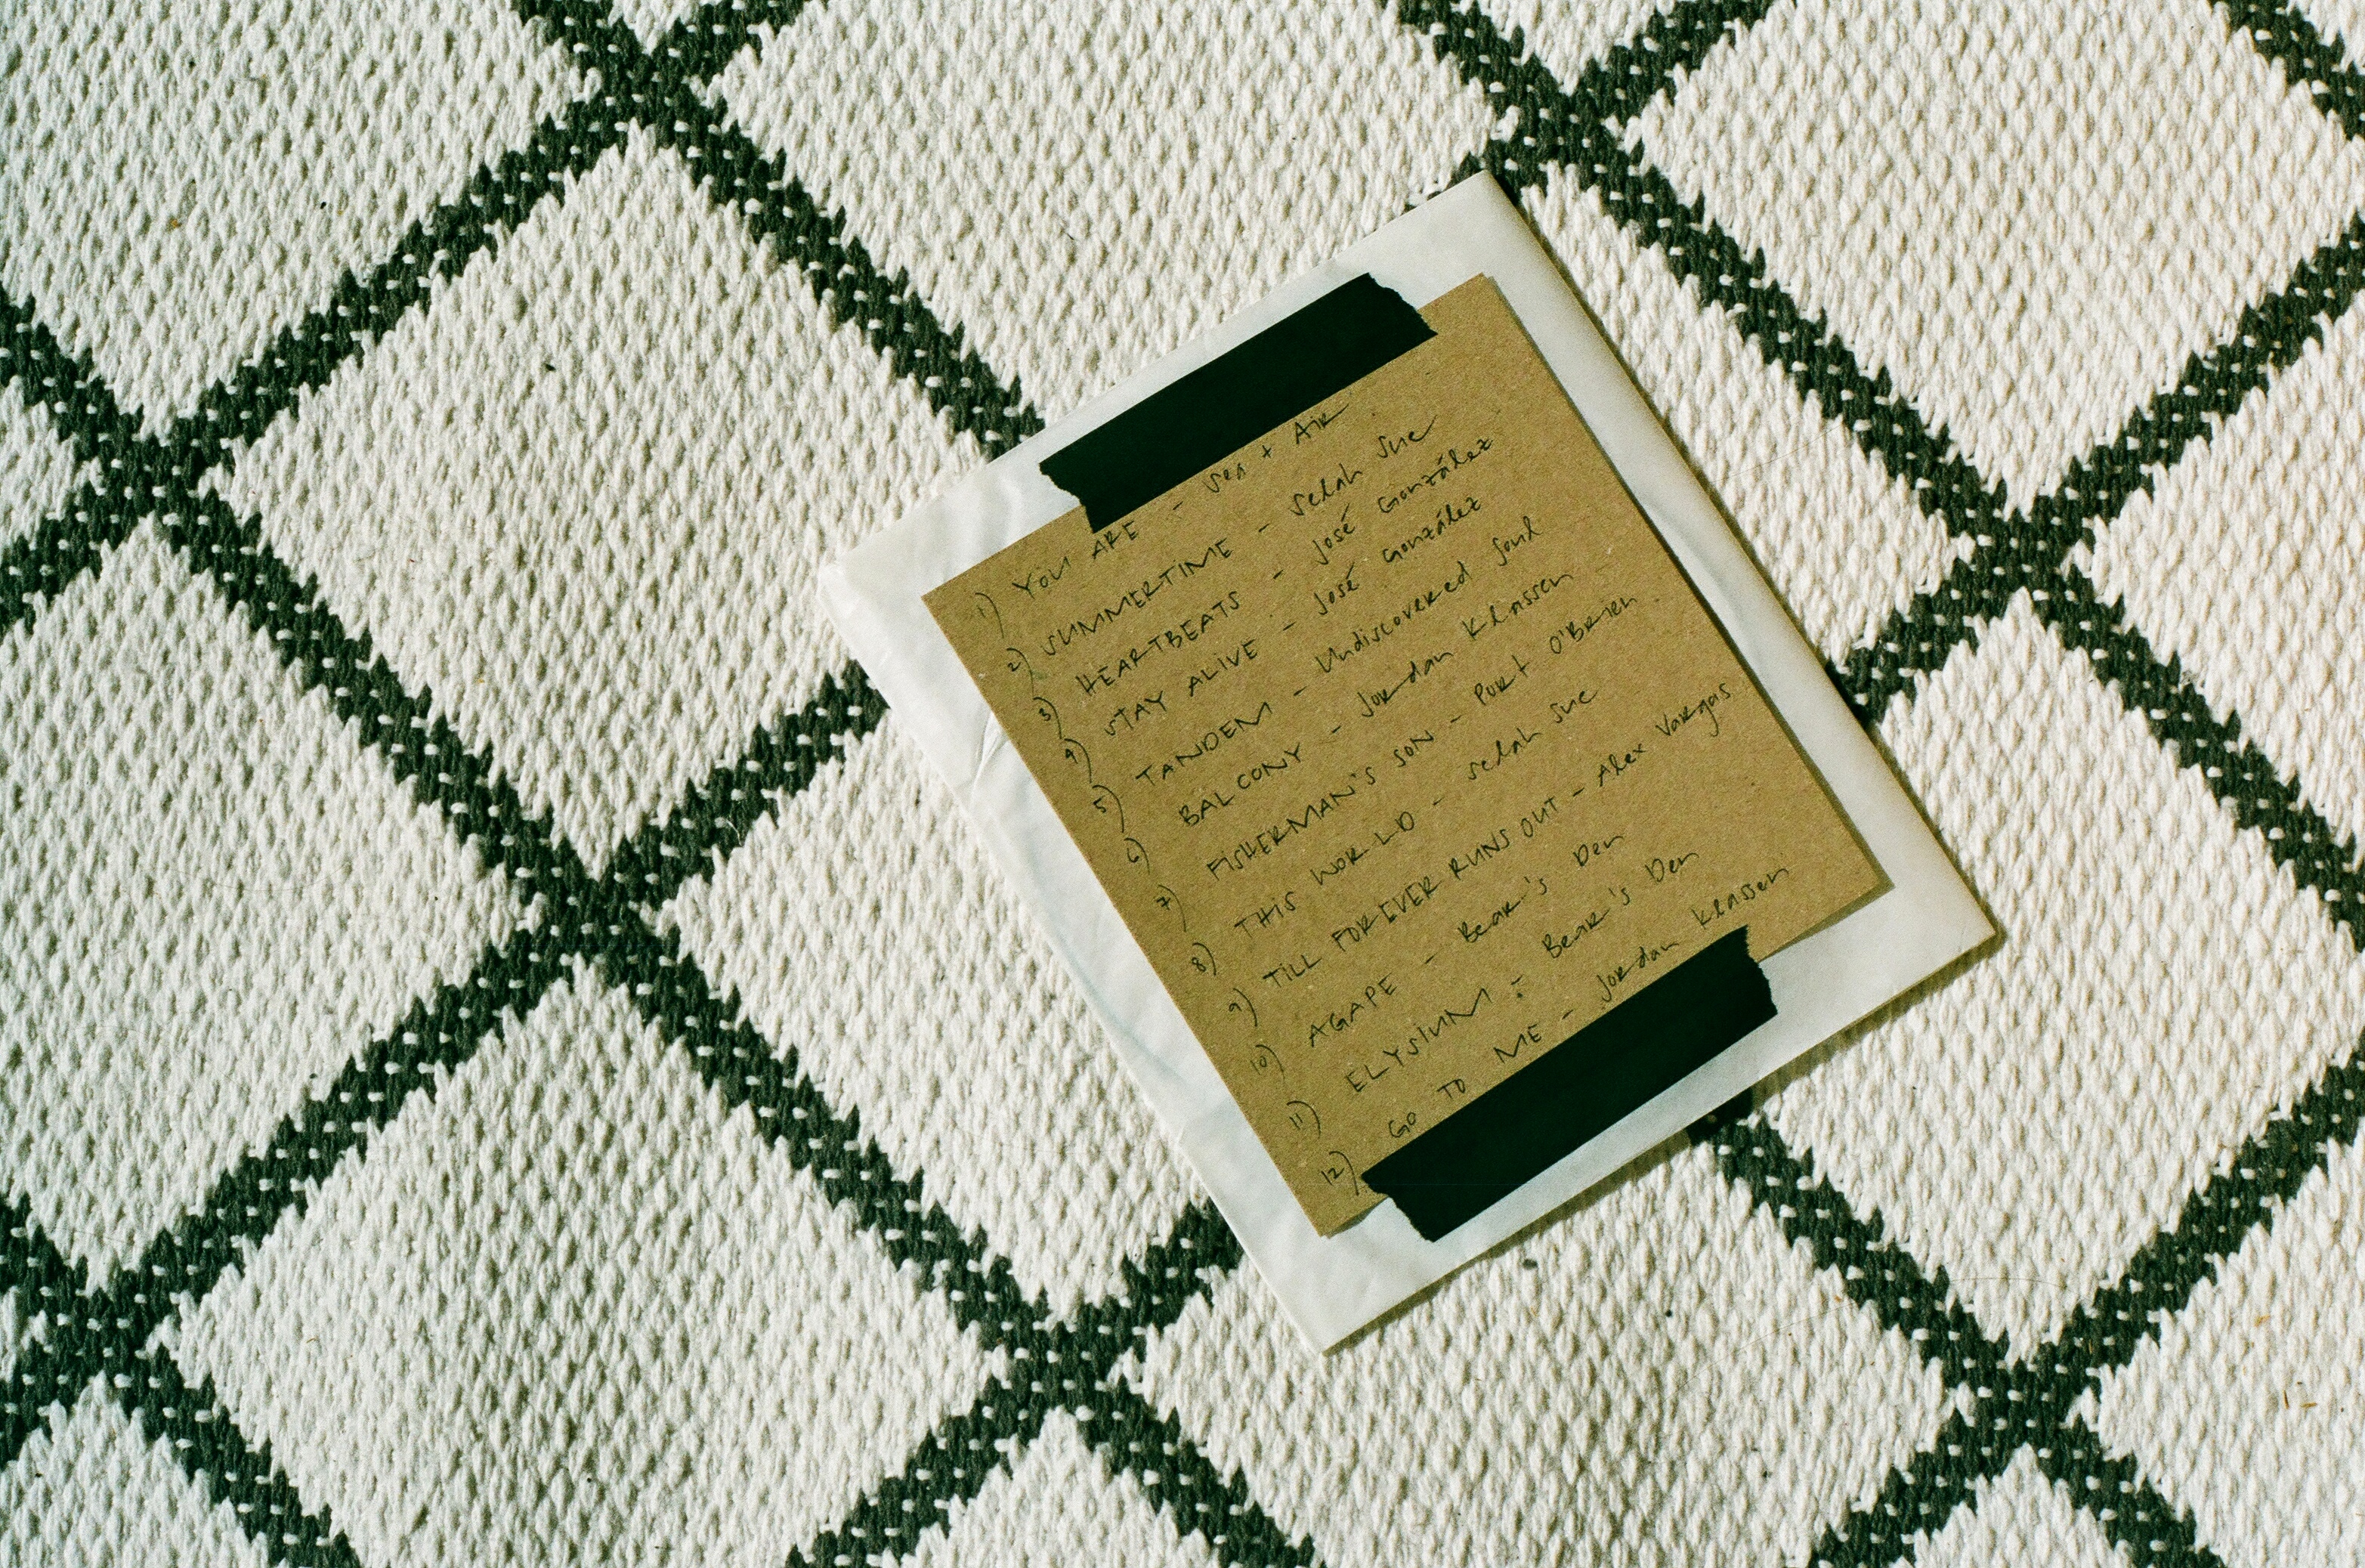 1) YOU ARE - Sea + Air
2) SUMMERTIME - Selah Sue
3) HEARTBEATS - José González
4) STAY ALIVE - José González
5) TANDEM - Undiscovered Soul
6) BALCONY - Jordan Klassen
7) FISHERMAN'S SON - Port O'Brien
8) THIS WORLD - Selah Sue
9) TILL FOREVER RUNS OUT - Alex Vargas
10) AGAPE - Bear's Den
11) ELYSIUM - Bear's Den
12) GO TO ME - Jordan Klassen